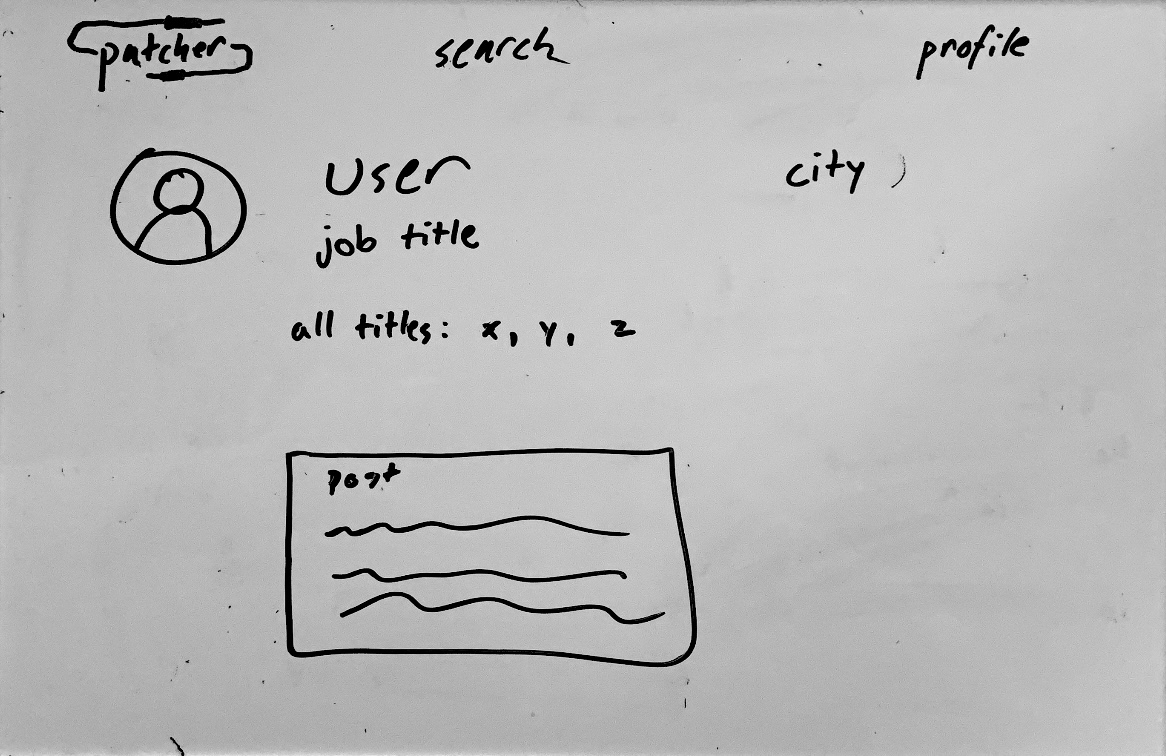 patcher search profile
user city
job title
all titles: x, y, z
post